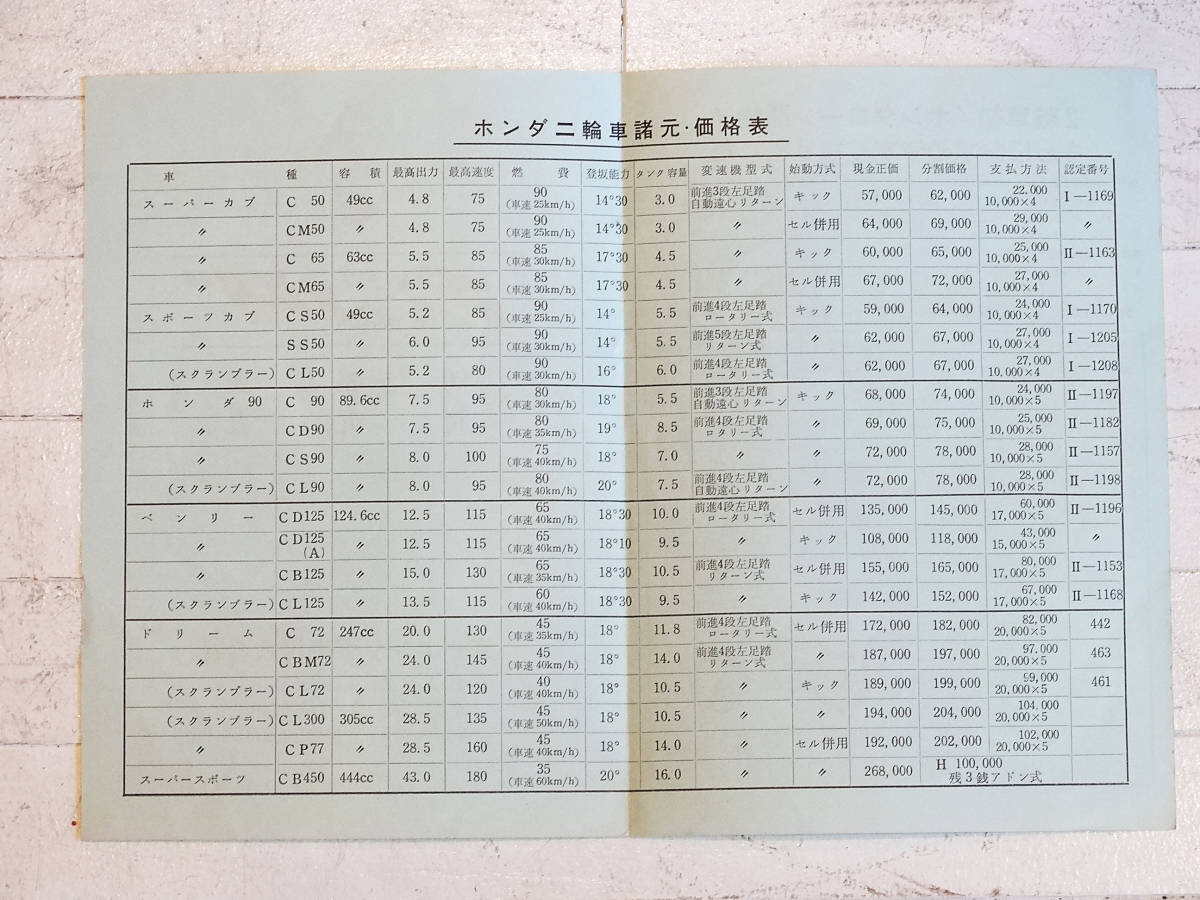 ホンダ二輪車諸元・価格表
車種 容積 最高出力 最高速度 燃費 登坂能力 タンク容量 変速機型式 始動方式 現金正価 分割価格 支払方法 認定番号
スーパーカブ C 50 49cc 4.8 75 90 (車速25km/h) 14°30 3.0 前進3段左足踏 自動遠心リターン キック 57,000 62,000 22,000 10,000×4 I—1169
〃 CM50 〃 4.8 75 90 (車速25km/h) 14°30 3.0 〃 セル併用 64,000 69,000 29,000 10,000×4 〃
〃 C 65 63cc 5.5 85 85 (車速30km/h) 17°30 4.5 〃 キック 60,000 65,000 25,000 10,000×4 II—1163
〃 CM65 〃 5.5 85 85 (車速30km/h) 17°30 4.5 〃 セル併用 67,000 72,000 27,000 10,000×4 〃
スポーツカブ CS50 49cc 5.2 85 90 (車速25km/h) 14° 5.5 前進4段左足踏 ロータリー式 キック 59,000 64,000 24,000 10,000×4 I—1170
〃 SS50 〃 6.0 95 90 (車速30km/h) 14° 5.5 前進5段左足踏 リターン式 〃 62,000 67,000 27,000 10,000×4 I—1205
(スクランブラー) CL50 〃 5.2 80 90 (車速30km/h) 16° 6.0 前進4段左足踏 ロータリー式 〃 62,000 67,000 27,000 10,000×4 I—1208
ホンダ90 C 90 89.6cc 7.5 95 80 (車速30km/h) 18° 5.5 前進3段左足踏 自動遠心リターン キック 68,000 74,000 24,000 10,000×5 II—1197
〃 CD90 〃 7.5 95 80 (車速35km/h) 19° 8.5 前進4段左足踏 ロタリー式 〃 69,000 75,000 25,000 10,000×5 II—1182
〃 CS90 〃 8.0 100 75 (車速40km/h) 18° 7.0 〃 〃 72,000 78,000 28,000 10,000×5 II—1157
(スクランブラー) CL90 〃 8.0 95 80 (車速40km/h) 20° 7.5 前進4段左足踏 自動遠心リターン 〃 72,000 78,000 28,000 10,000×5 II—1198
ベンリー CD125 124.6cc 12.5 115 65 (車速40km/h) 18°30 10.0 前進4段左足踏 ロータリー式 セル併用 135,000 145,000 60,000 17,000×5 II—1196
〃 CD125 (A) 〃 12.5 115 65 (車速40km/h) 18°10 9.5 〃 キック 108,000 118,000 43,000 15,000×5 〃
〃 CB125 〃 15.0 130 65 (車速35km/h) 18°30 10.5 前進4段左足踏 リターン式 セル併用 155,000 165,000 80,000 17,000×5 II—1153
(スクランブラー) CL125 〃 13.5 115 60 (車速40km/h) 18°30 9.5 〃 キック 142,000 152,000 67,000 17,000×5 II—1168
ドリーム C 72 247cc 20.0 130 45 (車速35km/h) 18° 11.8 前進4段左足踏 ロータリー式 セル併用 172,000 182,000 82,000 20,000×5 442
〃 CBM72 〃 24.0 145 45 (車速40km/h) 18° 14.0 前進4段左足踏 リターン式 〃 187,000 197,000 97,000 20,000×5 463
(スクランブラー) CL72 〃 24.0 120 40 (車速40km/h) 18° 10.5 〃 キック 189,000 199,000 99,000 20,000×5 461
(スクランブラー) CL300 305cc 28.5 135 45 (車速50km/h) 18° 10.5 〃 〃 194,000 204,000 104,000 20,000×5
〃 CP77 〃 28.5 160 45 (車速40km/h) 18° 14.0 〃 セル併用 192,000 202,000 102,000 20,000×5
スーパースポーツ CB450 444cc 43.0 180 35 (車速60km/h) 20° 16.0 〃 〃 268,000 H 100,000 残3銭アドン式